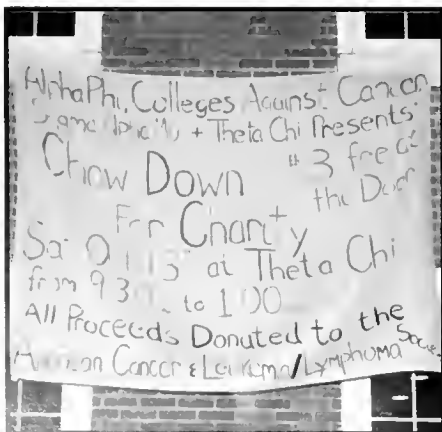 Alpha Phi, Colleges Against Cancer
+ Theta Chi Presents:
Chow Down
$3 fee at
the Door
For Charity
at Theta Chi
from to 1:00
All Proceeds Donated to the
Cancer & Leukemia/Lymphoma